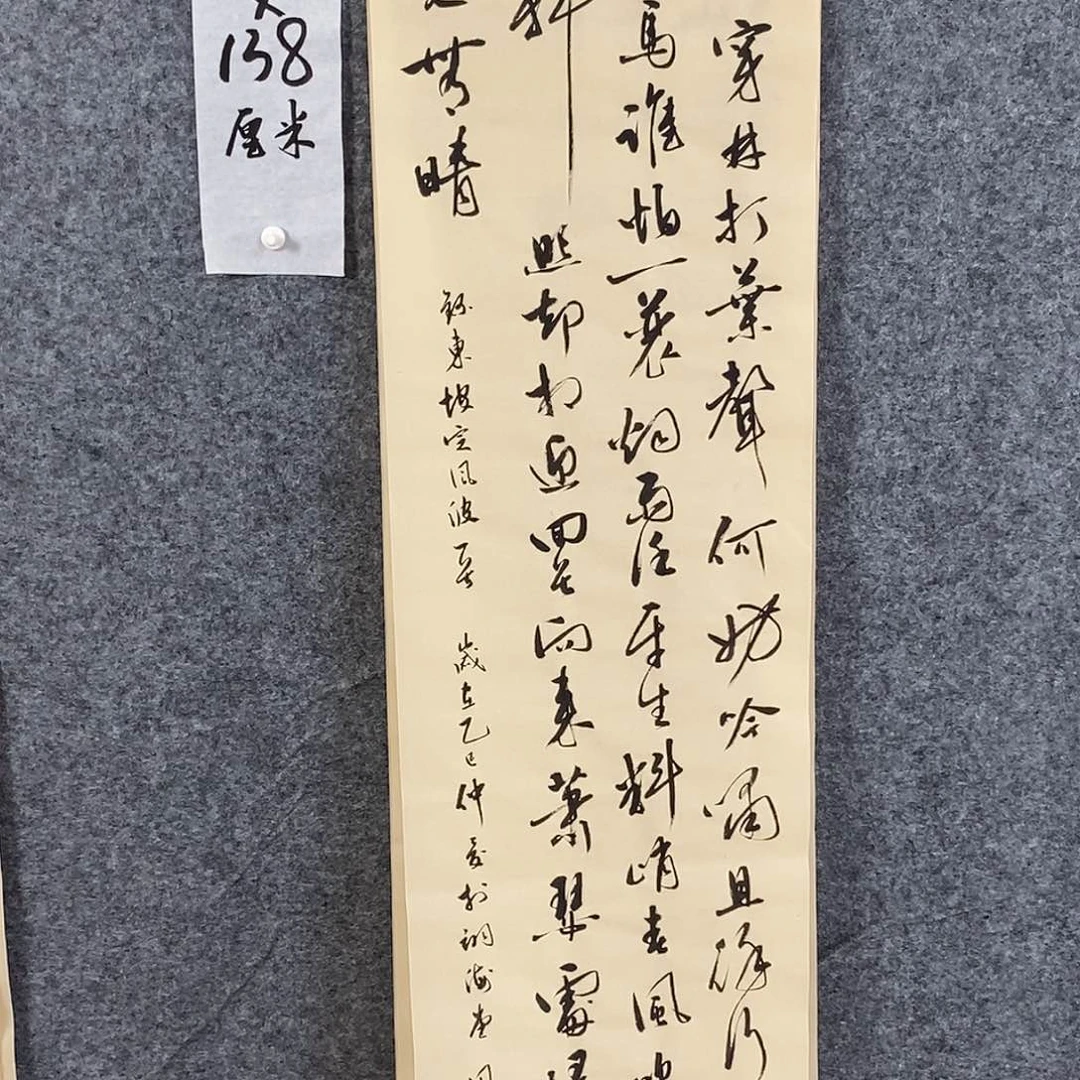 穿林打葉聲何妨吟嘯且徐行
馬誰怕一蓑烟雨任平生料峭春風
斜照却相迎回首向来蕭瑟處
也無晴
東坡定風波一首 歲在乙巳仲夏於海堂
138
厘米